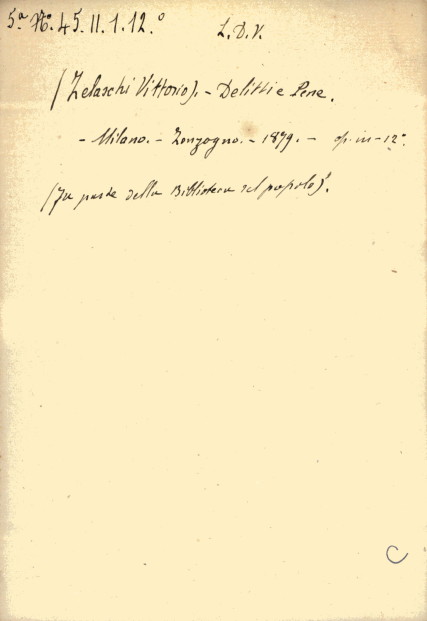 5ª Nº. 45. II. 1. 12.º
L. D. V.
(Zelaschi Vittorio). - Delitti e Pene.
- Milano. - Zonzogno. - 1879. - op. in-12º.
(Fa parte della Biblioteca del popolo).
C